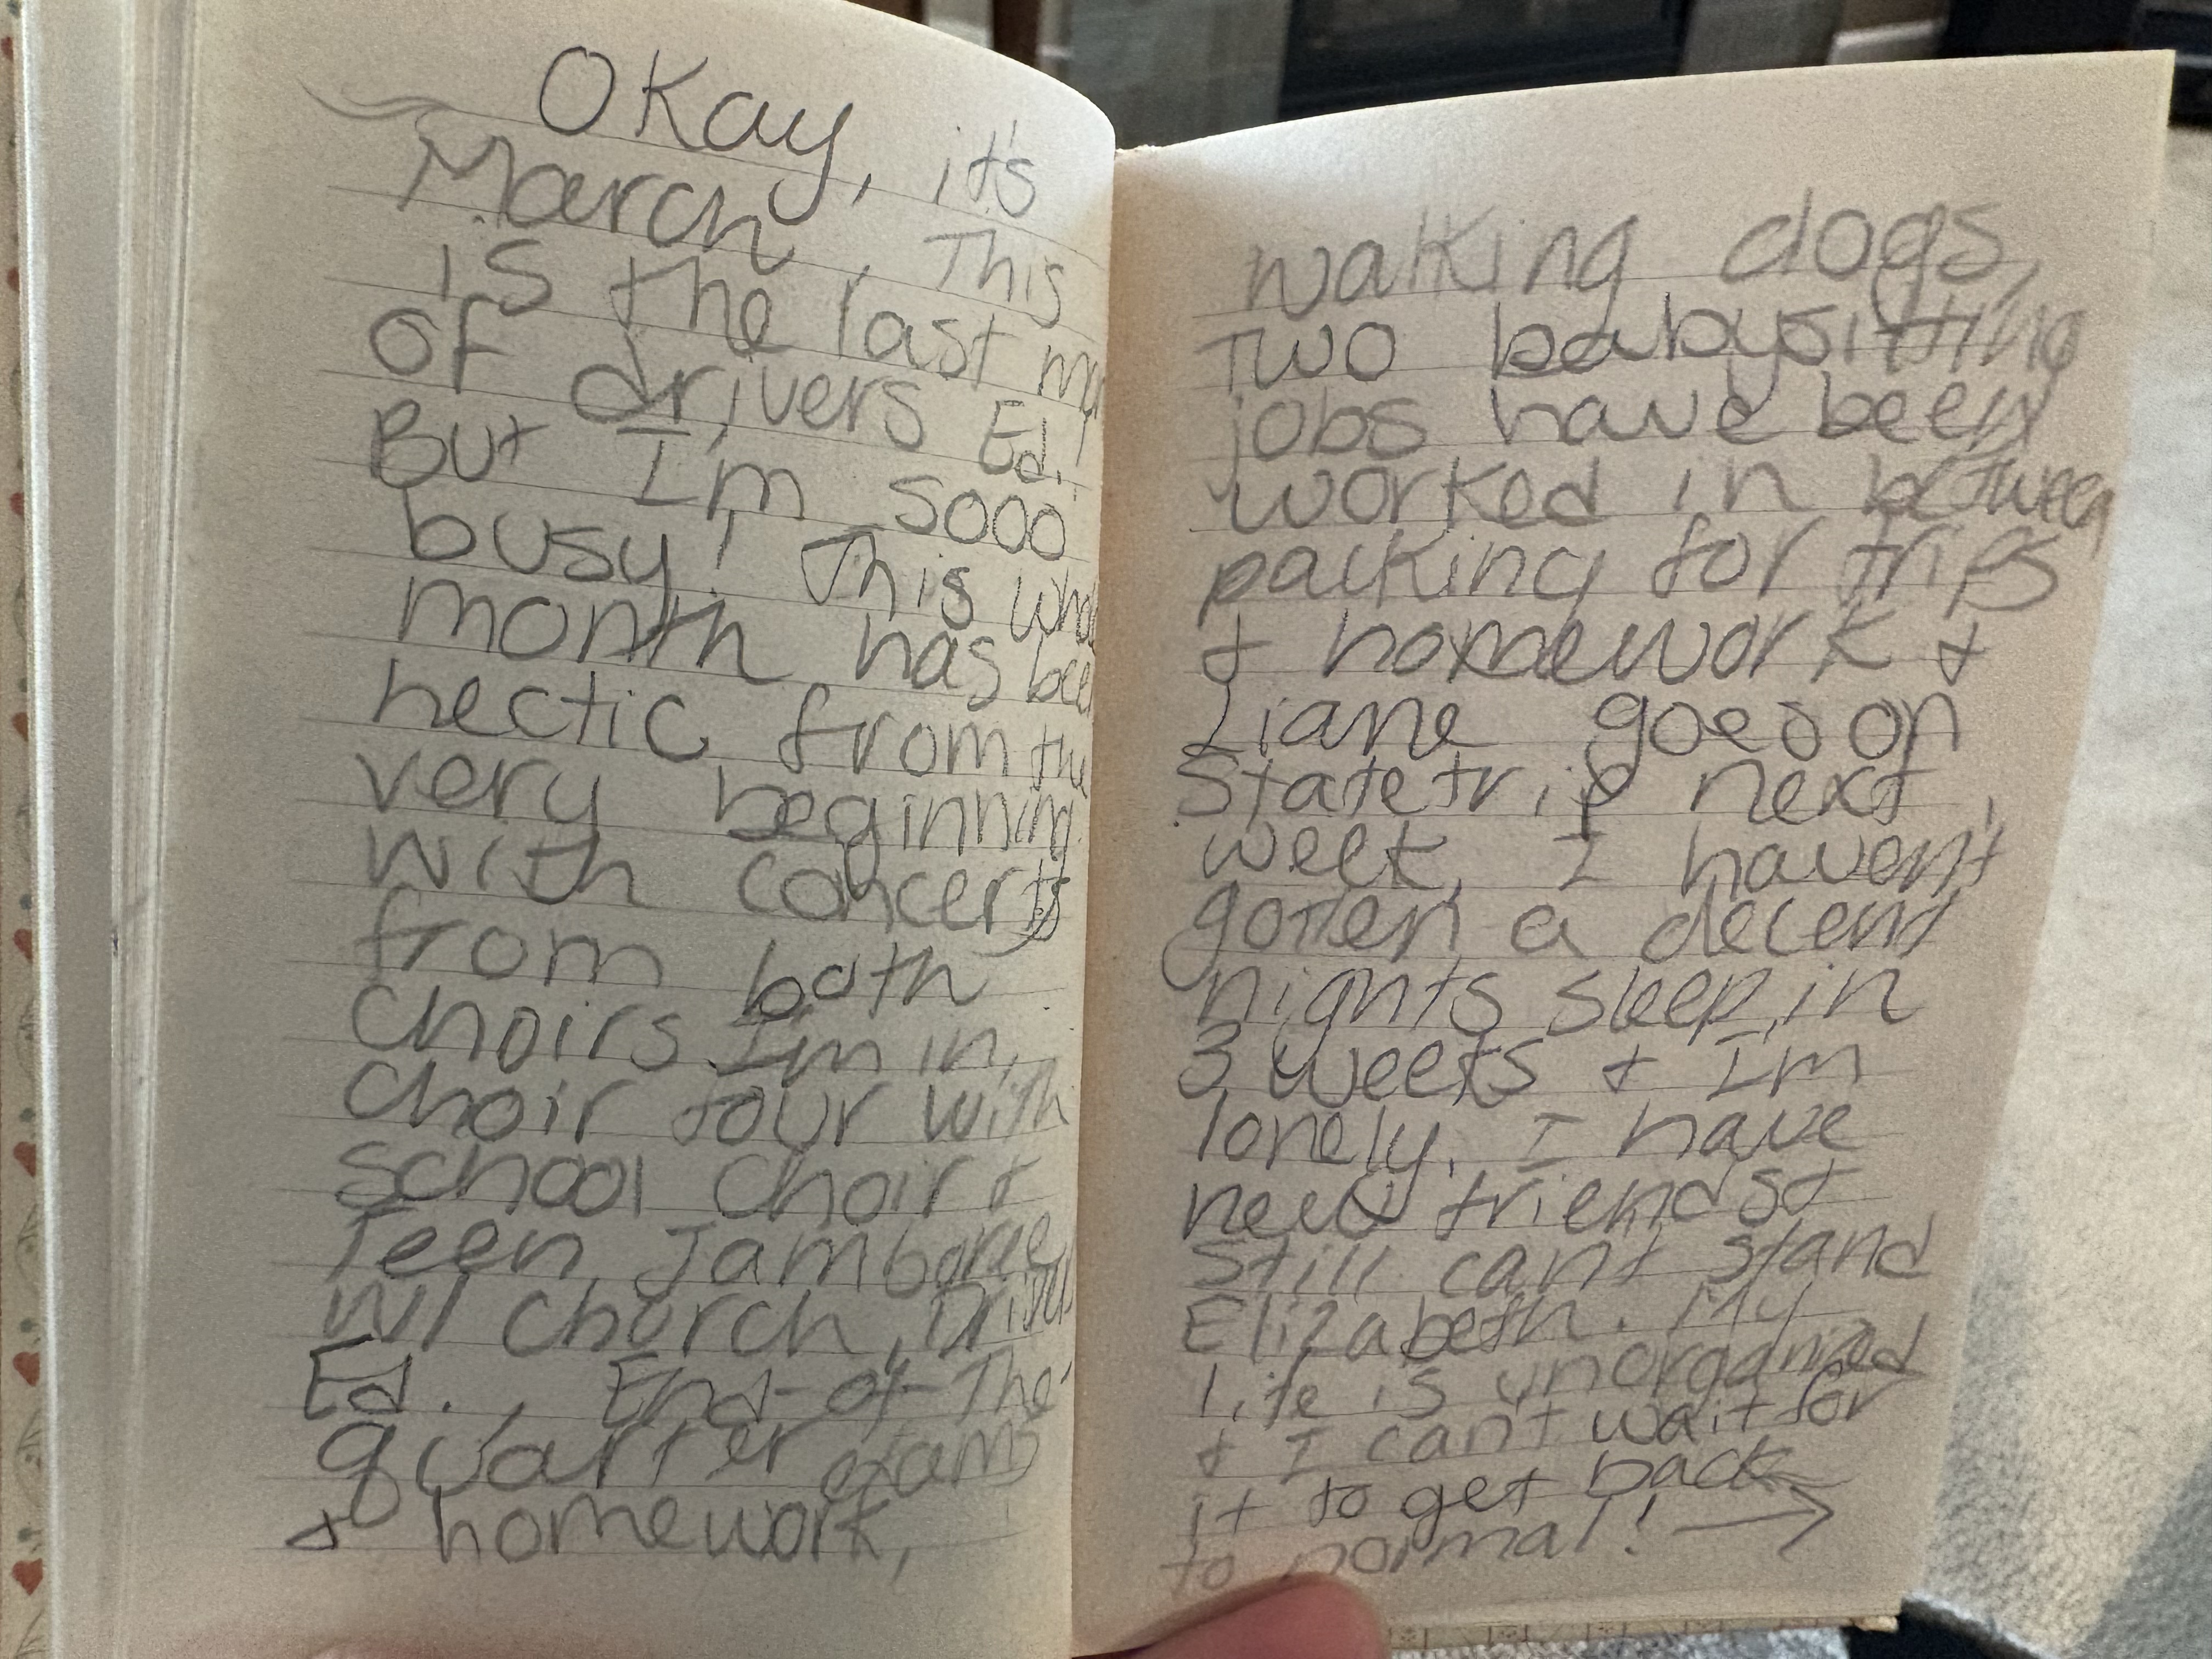 Okay, it's
March. This
is the last
of drivers Ed.!
But I'm sooo
busy! This
month has
hectic from the
very beginning
with concerts
from both
choirs I'm in,
choir tour with
school choir &
Teen Jamboree
w/ church,
Ed., End-of-The-
quarter exams
& homework,
walking dogs,
Two babysitting
jobs have been
worked in between
packing for trips
& homework &
Liane goes on
State trip next
week. I haven't
gotten a decent
nights sleep in
3 weeks & I'm
lonely. I have
new friends &
still can't stand
Elizabeth. My
life is unorganized
& I can't wait for
it to get back
to normal! →